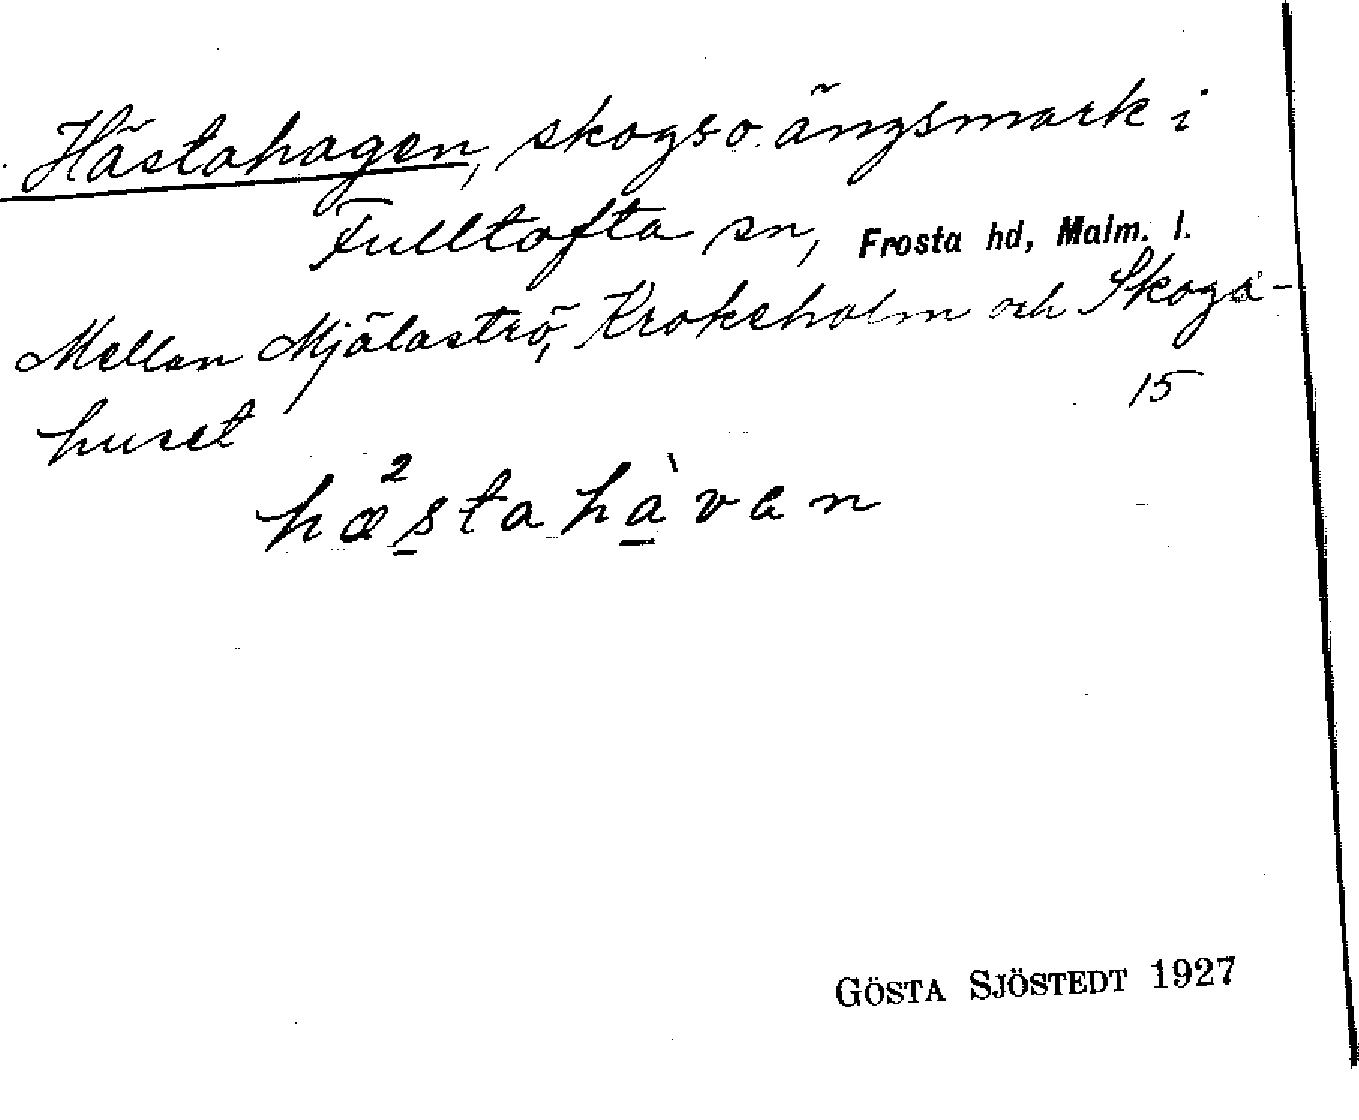 Hästahagen, skogs o. ängsmark i
Fulltofta sn, Frosta hd, Malm. l.
Mellan Mjälaströ, Kroksholm och Skogs-
huset
15
hæ²stahàvan
GÖSTA SJÖSTEDT 1927